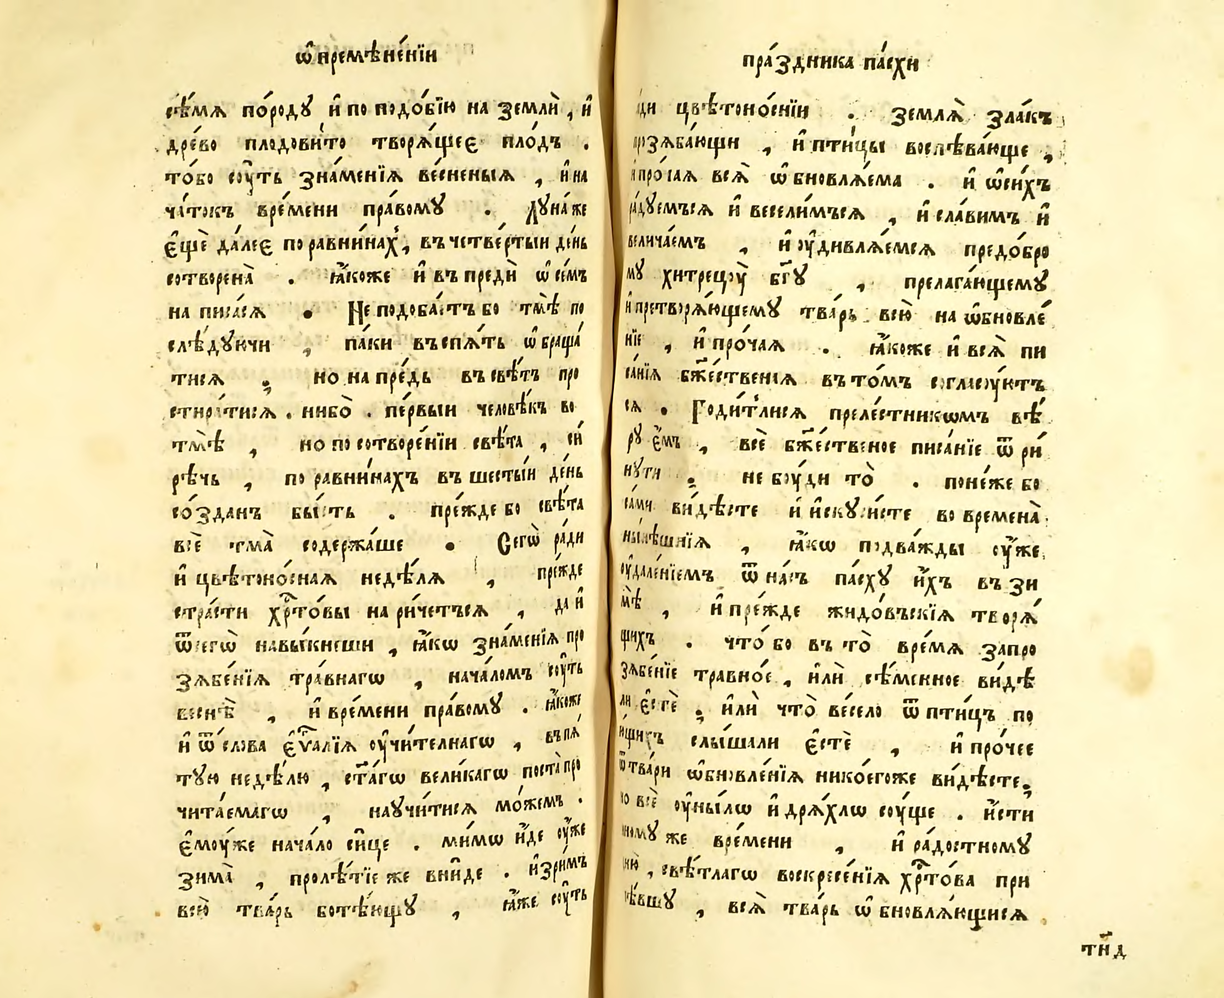 ѡ҆премѣне́нїи
сѣ́мѧ по́родꙋ и҆ по подо́бїю на землѝ , и҆
дре́во плодови́то творѧ́щеє пло́дъ .
то́бо соу́ть зна́менїѧ ве́сненыѧ , и҆ на
ча́токъ вре́мени пра́вомꙋ . Лꙋна́ же
є҆щѐ да́леє по равни́нахъ , въ четве́ртыи де́нь
сотворенà . ꙗ҆́коже и҆ въ предѝ ѡ҆ се́мъ
на писа́сѧ . Не подоба́етъ бо тмѣ̀ по
слѣ́дꙋючи , па́ки въспѧ́ть ѡ҆браща́
тисѧ , но на пре́дь въ свѣ́тъ про
стира́тисѧ . нибо̀ . пе́рвыи человѣ́къ во
тмѣ̀ , но по сотворе́нїи свѣ́та , си́
рѣчь , по равни́нахъ въ шесты́и де́нь
со́зданъ бы́сть . пре́жде бо свѣ́та
всѐ тма̀ содержа́ше . Сегѡ̀ ра́ди
и҆ цвѣтоно́снаѧ недѣ́лѧ , пре́жде
стра́сти хр҇то́вы на ри́четъсѧ , да и҆
ѿ сегѡ̀ навы́кнеши , ꙗ҆́кѡ зна́менїѧ про
зѧбе́нїѧ тра́внагѡ , нача́ломъ соу́ть
веснѣ̀ , и҆ вре́мени пра́вомꙋ . ꙗ҆́коже
и҆ ѿ сло́ва є҆ѵа҇лїѧ оу҆чи́телнагѡ , въ пѧ́
тꙋю недѣ́лю , ст҃а́гѡ вели́кагѡ поста̀ про
чита́емагѡ , наꙋчи́тисѧ мо́жемъ .
є҆моу́же нача́ло си́це . ми́мѡ и҆́де оу҆́же
зима̀ , пролѣ́тїє же вни́де . и҆зри́мъ
всю̀ тва́рь ботѣ́ющꙋ , ꙗ҆́же соу́ть
пра́здника па́схи
ди цвѣтоно́снїи . землѧ̀ зла́къ
прозѧба́ющи , и҆ пти́цы воспѣва́юще ,
и҆ про́чаѧ всѧ̀ ѡ҆бновлѧ́ема . и҆ ѡ҆ си́хъ
ра́дꙋемъсѧ и҆ весели́мъсѧ , и҆ сла́вимъ и҆
велича́емъ , и҆ оу҆дивлѧ́емсѧ предо́бро
мꙋ хитрецоу̀ бг҃ꙋ , прелага́ющемꙋ
и҆ претворѧ́ющемꙋ тва́рь всю̀ на ѡ҆бновле́
нїе , и҆ про́чаѧ . ꙗ҆́коже и҆ всѧ̀ пи
са́нїѧ бж҃е́ственїѧ въ то́мъ согласꙋ́ютъ
сѧ . Годи́тлисѧ преле́стникѡмъ вѣ́
рꙋ є҆́мъ , всѐ бж҃е́ственое писа́нїе ѿ ри́
нꙋти , не бꙋ́ди то̀ . поне́же бо
са́ми ви́дѣсте и҆ и҆скꙋси́сте во времена̀
ны́нѣшнїѧ , ꙗ҆́кѡ подва́жды оу҆́же
оу҆дале́нїемъ ѿ на́съ па́схꙋ и҆́хъ въ зи
мѣ̀ , и҆ пре́жде жидо́въскїѧ творѧ́
щихъ . что́ бо въ то̀ вре́мѧ запро
зѧбе́нїе травно́е , и҆лѝ сѣ́менное ви́дѣ
ли є҆стѐ , и҆лѝ что̀ ве́село ѿ пти́цъ по
ю́щихъ слы́шали є҆стѐ , и҆ про́чее
ѿ тва́ри ѡ҆бновле́нїѧ нико́егоже ви́дѣсте ,
но всѐ оу҆ны́лѡ и҆ дрѧ́хлѡ соу́ще . и҆́сти
нномꙋ же вре́мени , и҆ ра́достномꙋ
дню̀ , свѣ́тлагѡ воскресе́нїѧ хр҇то́ва при
спѣ́вшꙋ , всѧ̀ тва́рь ѡ҆бновлѧ́ющисѧ
тн҃д